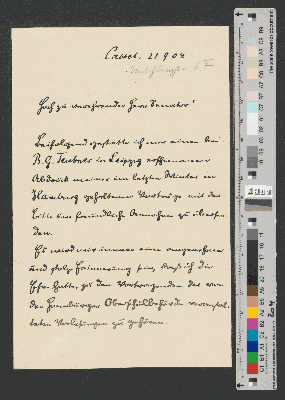 Cassel, 21 9 04.
Hoch zu verehrender Herr Senator!
Beifolgend gestatte ich mir einen bei
B. G. Teubner in Leipzig erschienenen
Abdruck meiner im letzten Winter in
Hamburg gehaltenen Vorträge mit der
Bitte um freundliche Annahme zu übersen-
den.
Es wird mir immer eine angenehme
und stolze Erinnerung sein, daß ich die
Ehre hatte, zu den Vortragenden der von
der Hamburger Oberschulbehörde veranstal-
teten Vorlesungen zu gehören.